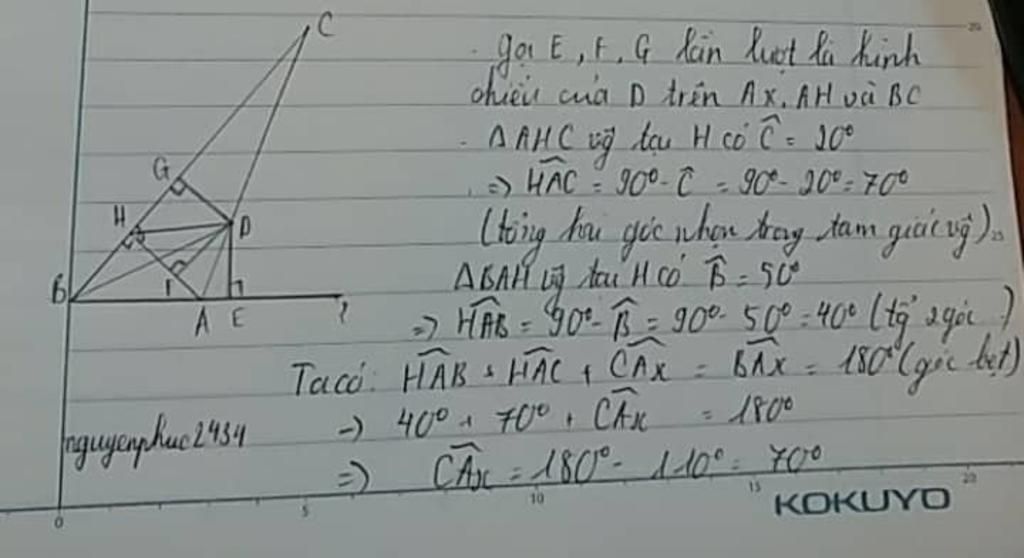 C
G
H
D
B
F
A E x
. Gọi E, F, G lần lượt là hình
chiếu của D trên Ax, AH và BC
. ΔAHC vg tại H có Ĉ = 20°
=> HAC = 90° - Ĉ = 90° - 20° = 70°
(tổng hai góc nhọn trong tam giác vg)
ΔBAH vg tại H có B̂ = 50°
=> HAB = 90° - B̂ = 90° - 50° = 40° (tg 2 góc )
Ta có: HAB + HAC + CAx = BAx = 180° (góc bẹt)
-> 40° + 70° + CAx = 180°
=> CAx = 180° - 110° = 70°
nguyenphuc2434
0 5 10 15 20
KOKUYO